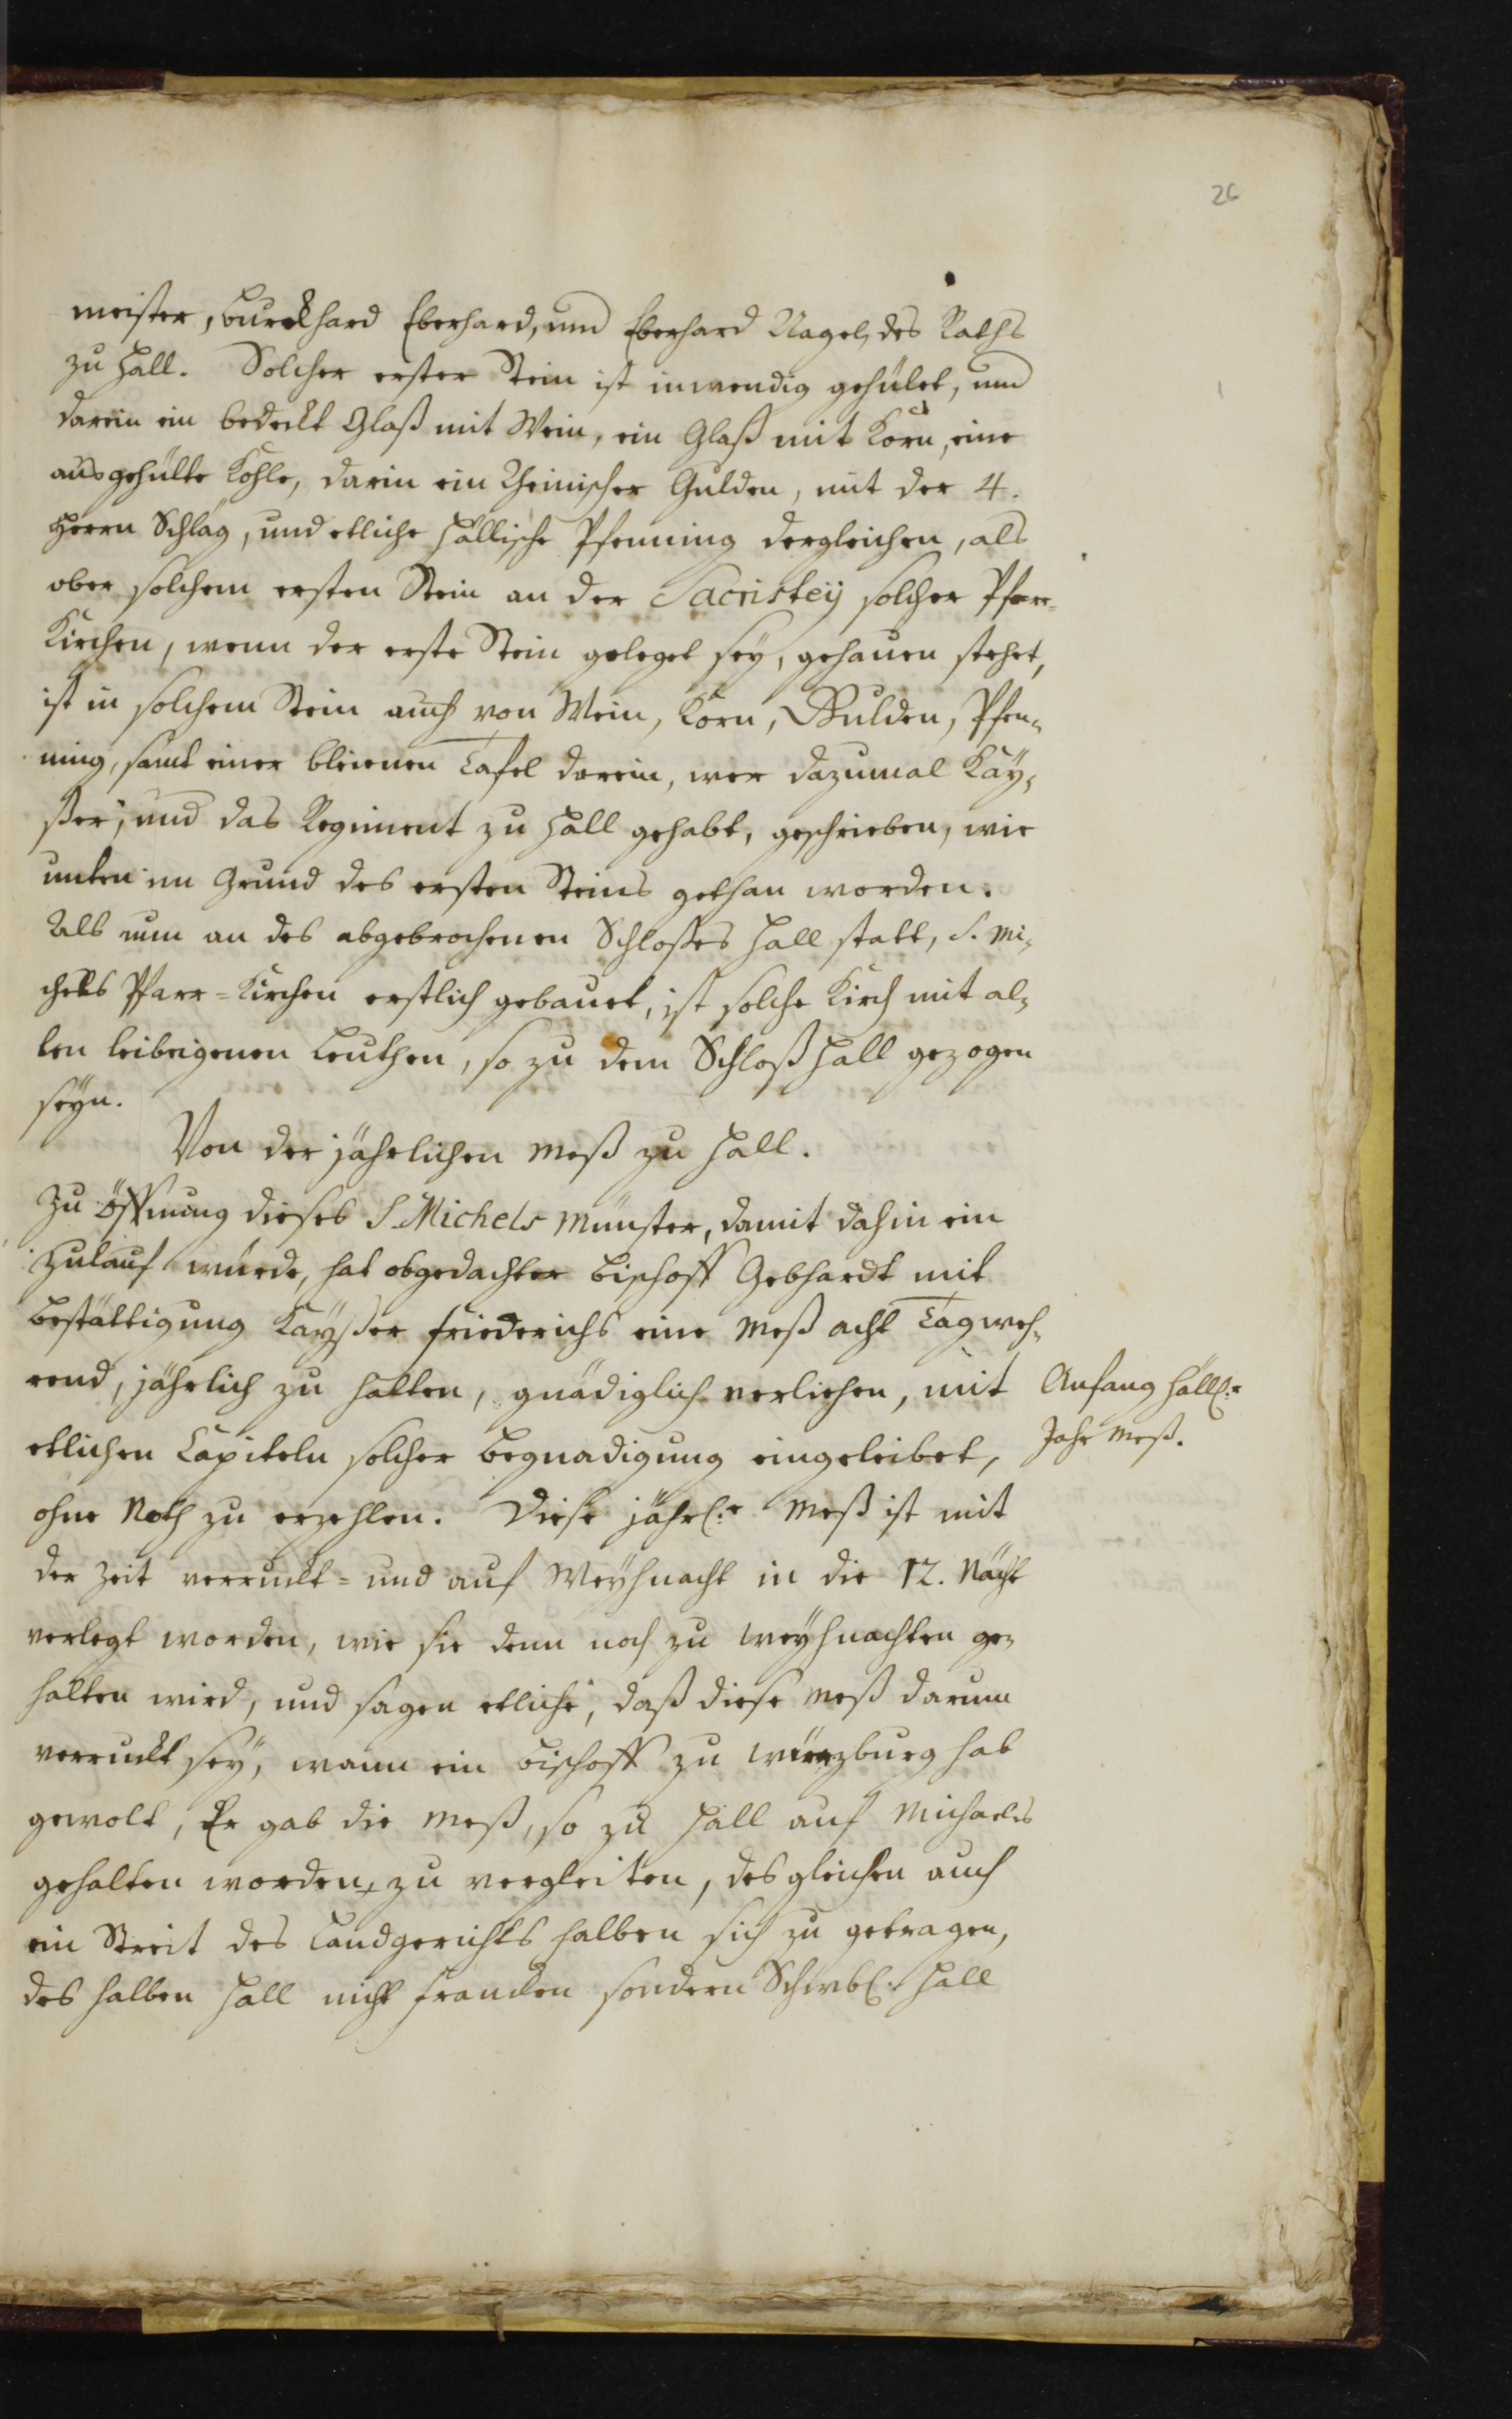 26
meister, Burckhard Eberhard, und Eberhard Nagel, des Raths
zu Hall. Solcher erster Stein ist inwendig gehület, und
darein ein bedeckt Glaß mit Wein, ein Glaß mit Korn, eine
ausgehülte Kohle, darin ein Rheinischer Gulden, mit der 4.
Herrn Schlag, und etliche Hällische Pfenning dergleichen, als
ober solchem ersten Stein an der Sacristeÿ solcher Pfarr-
Kirchen, wenn der erste Stein geleget seÿ, gehauen stehet,
ist in solchem Stein auch von Wein, Korn, Gulden, Pfen-
ning, samt einer bleienen Tafel darein, wer dazumal Kaÿ-
ßer, und das Regiment zu Hall gehabt, geschrieben, wie
unten im Grund des ersten Steins gethan worden.
Als nun an des abgebrochenen Schloßes Hall statt, S. Mi-
chels Pfarr-Kirchen erstlich gebauet, ist solche Kirch mit al-
len leibeigenen Leuthen, so zu dem Schloß Hall gezogen
seÿn.
Von der jährlichen Meß zu Hall.
Zu Öffnung dieses S. Michels Münster, damit dahin ein
Zulauf würde, hat obgedachter Bischoff Gebhardt mit
Bestättigung Kaÿßer Friederichs eine Meß acht Tag weh-
rend, jährlich zu halten, gnädiglich verliehen, mit
Anfang Häll: r
Jahr Meß.
etlichen Capiteln solcher Begnadigung eingeleibet,
ohne Noth zu erzehlen. Diese jährl: e Meß ist mit
der Zeit verruckt- und auf Weÿhnacht in die 12. Nächt
verlegt worden, wie sie denn noch zu Weÿhnachten ge-
halten wird, und sagen etliche, daß diese Meß darum
verruckt seÿ, wann ein Bischoff zu Würzburg hab
gewolt, Er gab die Meß, so zu Hall auf Michaelis
gehalten worden, zu vergleiten, desgleichen auch
ein Streit des Landgerichts halben sich zu getragen,
des halben Hall nicht Francken sondern Schwbl: Hall